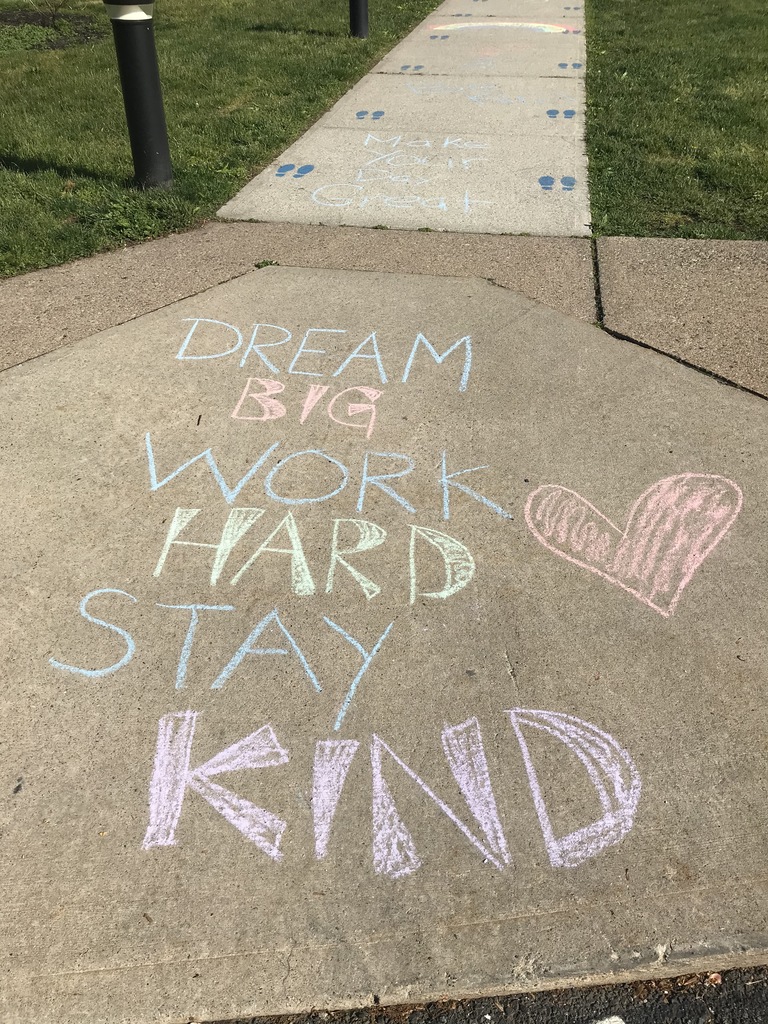 Make
Your
Day
Great
DREAM
BIG
WORK
HARD
STAY
KIND